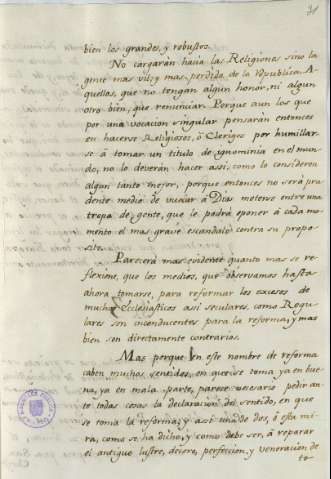 31
bien los grandes, y robustos.
No cargarán hacia las Religiones sino la
gente mas vil, y mas perdida de la republica. A-
quellas, que no tengan algun honor, ni algun
otro bien, que renunciar. Porque aun los que
por una vocacion singular pensarán entonces
en hacerse Religiosos, ò Clerigos por humillar-
se à tomar un titulo de ignominia en el mun-
do, no lo deverán hacer assi, como lo consideren
algun tanto mejor, porque entonces no será pru-
dente medio de buscar à Dios meterse entre una
tropa de gente, que le podrá oponer á cada mo-
mento el mas grave escandalo contra su propo-
sito.
Parecerá mas evidente quanto mas se re-
flexione, que los medios, que observamos hasta
ahora tomarse, para reformar los excesos de
muchos Eclesiasticos assi seculares, como Regu-
lares son inconducentes para la reforma, y mas
bien son directamente contrarios.
Mas porque en este nombre de reforma
caben muchos sentidos, en que se toma ya en bue-
na, ya en mala parte, parece necesario pedir an-
te todas cosas la declaracion del sentido, en que
se toma la reforma; y assi una de dos, ò esta mi-
ra, como se ha dicho, y como debe ser, à reparar
el antiguo lustre, decoro, perfeccion, y veneracion de
to-